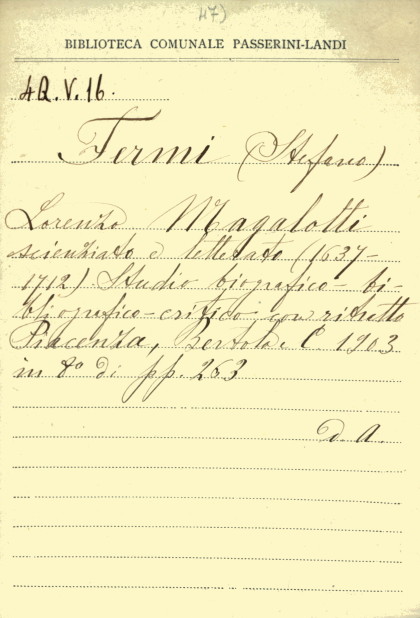 47)
BIBLIOTECA COMUNALE PASSERINI-LANDI
4Q.V.16.
Fermi (Stefano)
Lorenzo Magalotti
scienziato e letterato (1637-
1712) Studio biografico-bi-
bliografico-critico con ritratto
Piacenza, Bertola e C 1903
in 8° di pp. 263
d. A.